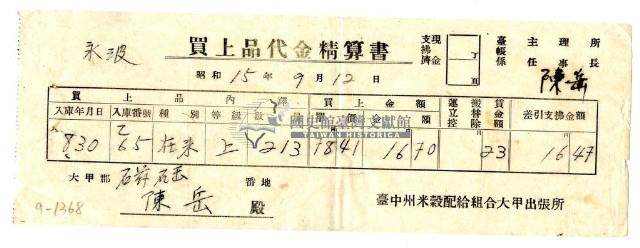 永波
買上品代金精算書
現金支拂濟
臺帳係
主任
理事
所長
陳岳
昭和 15 年 9 月 12 日
買上品內譯
買上金額
運搬賃立替金控除額
差引支拂金額
入庫年月日 入庫番號 種別 等級 數量 單價 金額
8 30 65 在來 上 213 1841 16 70 23 16 47
國史館臺灣文獻館
TAIWAN HISTORICA
大甲郡 番地
陳岳 殿
臺中州米穀配給組合大甲出張所
9-1368